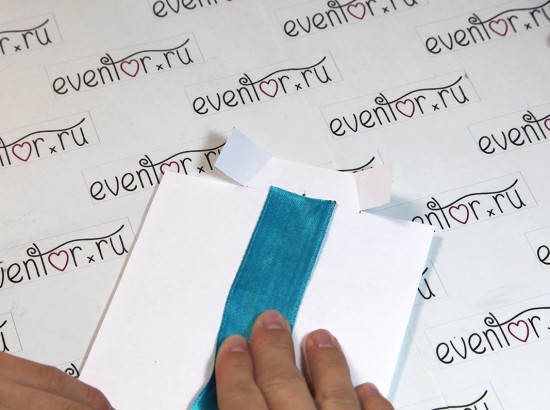 eventor.ru
eventor.ru
eventor.ru
eventor.ru
eventor.ru
eventor.ru
eventor.ru
eventor.ru
eventor.ru
eventor.ru
eventor.ru
eventor.ru